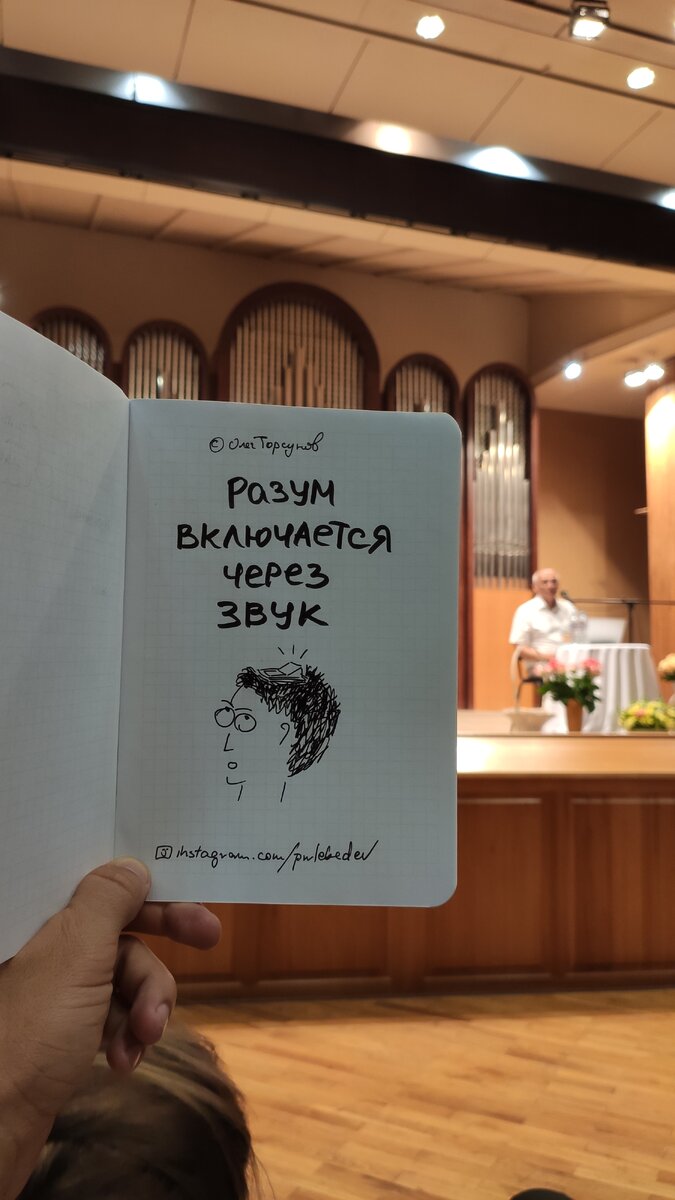 © Олег Торсунов
Разум
включается
через
звук
instagram.com/pwlebedev